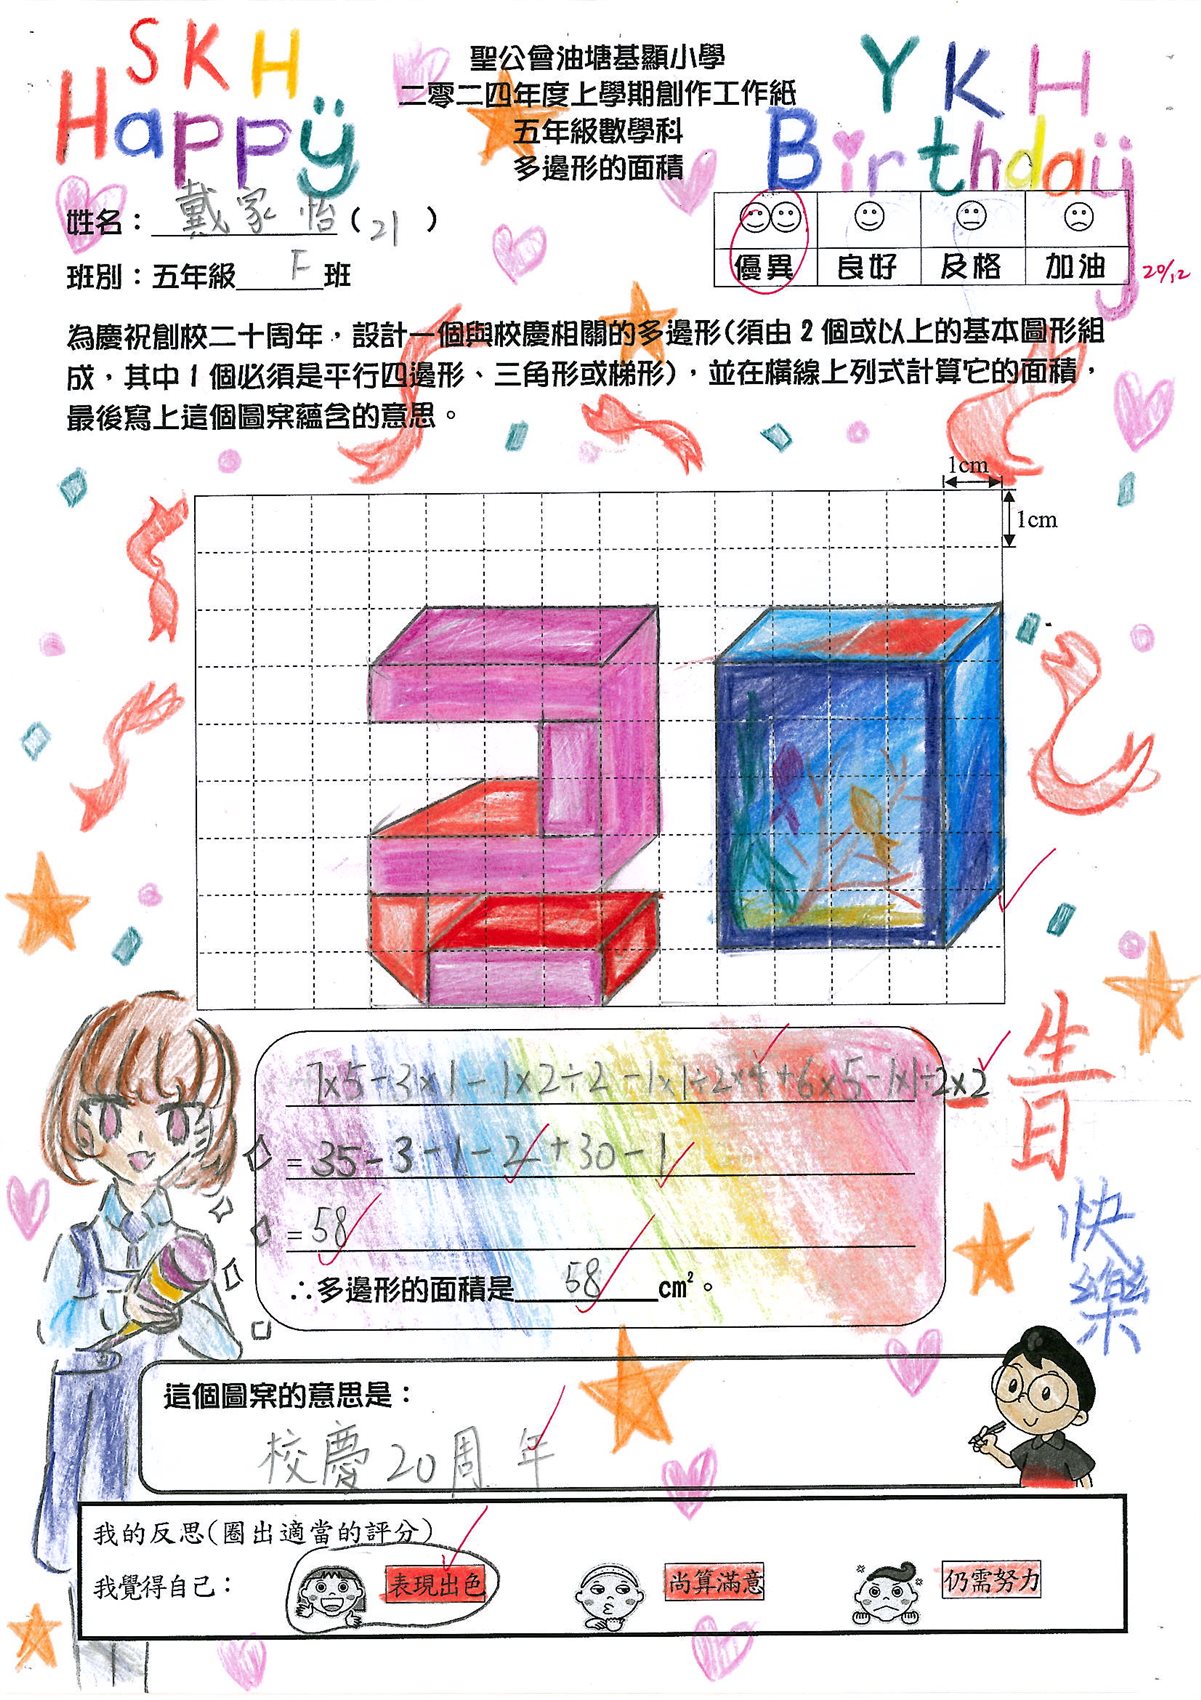 SKH
Happy
YKH
Birthday
聖公會油塘基顯小學
二零二四年度上學期創作工作紙
五年級數學科
多邊形的面積
姓名：戴家怡(21)
班別：五年級F班
優異 良好 及格 加油
20/12
為慶祝創校二十周年，設計一個與校慶相關的多邊形(須由2個或以上的基本圖形組
成，其中1個必須是平行四邊形、三角形或梯形)，並在橫線上列式計算它的面積，
最後寫上這個圖案蘊含的意思。
1cm
1cm
7×5-3×1-1×2÷2-1×1÷2×4+6×5-1×1÷2×2
=35-3-1-2+30-1
=58
∴多邊形的面積是58cm²。
生日
快樂
這個圖案的意思是：
校慶20周年
我的反思(圈出適當的評分)
我覺得自己： 表現出色 尚算滿意 仍需努力